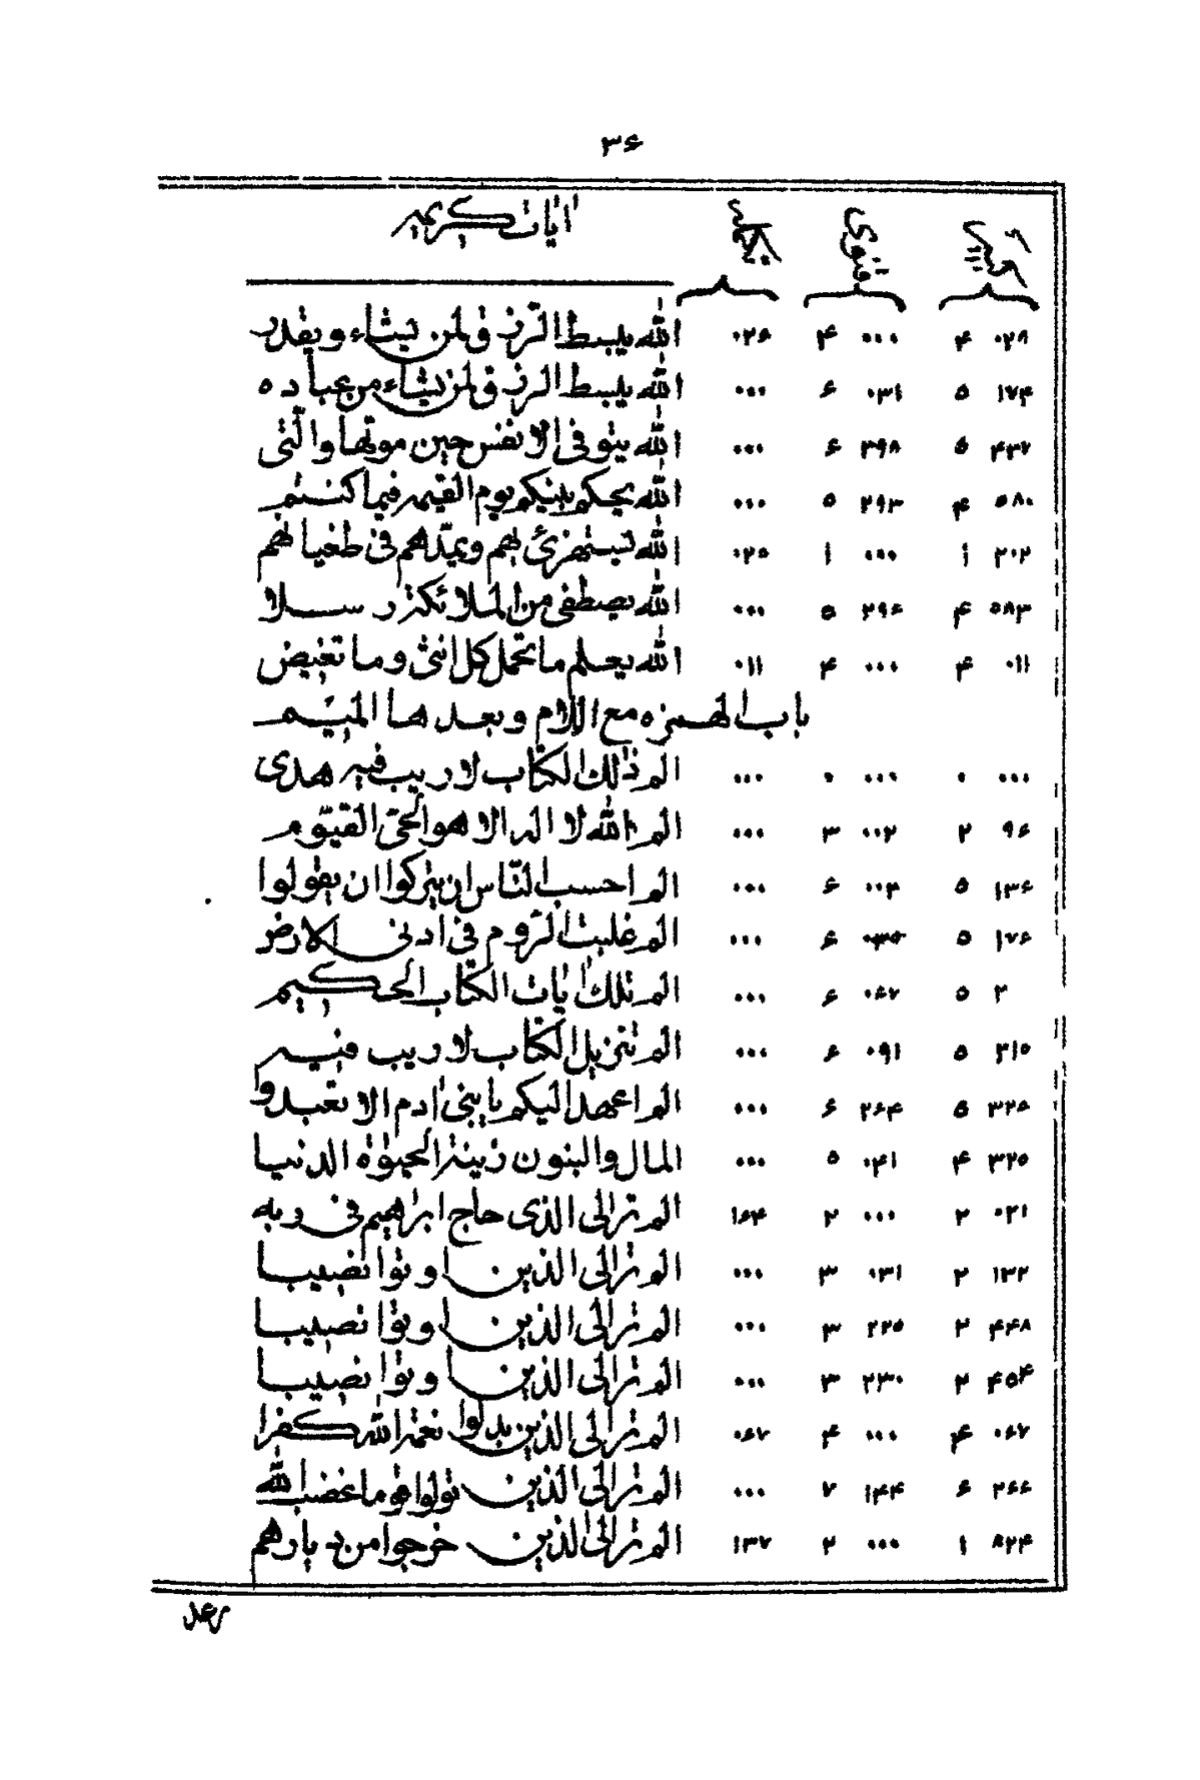 ۳۶
قنوى آيات كريمه
۰۲۸ ۴ ۰۰۰ ۴ ۰۲۶ الله يبسط الرزق لمن يشاء ويقدر
۱۷۴ ۵ ۰۳۱ ۶ ۰۰۰ الله يبسط الرزق لمن يشاء من عباده
۴۳۷ ۵ ۳۹۸ ۶ ۰۰۰ الله يتوفى الانفس حين موتها والتى
۵۸۰ ۴ ۲۹۳ ۵ ۰۰۰ الله يحكم بينكم يوم القيمه فيما كنتم
۲۰۲ ۱ ۰۰۰ ۱ ۰۲۵ الله يستهزئ بهم ويمدهم فى طغيانهم
۵۸۳ ۴ ۲۹۶ ۵ ۰۰۰ الله يصطفى من الملائكة رسلا
۰۱۱ ۴ ۰۰۰ ۴ ۰۱۱ الله يعلم ما تحمل كل انثى وما تغيض
باب الهمزه مع اللام وبعدها الميم
۰۰۰ ۰ ۰۰۰ ۰ ۰۰۰ الم ذلك الكتاب لا ريب فيه هدى
۹۶ ۲ ۰۰۲ ۳ ۰۰۰ الم الله لا اله الا هو الحىّ القيّوم
۱۳۶ ۵ ۰۰۲ ۶ ۰۰۰ الم احسب النّاس ان يتركوا ان يقولوا
۱۷۶ ۵ ۰۳۵ ۶ ۰۰۰ الم غلبت الرّوم فى ادنى الارض
۲ ۵ ۰۶۷ ۶ ۰۰۰ الم تلك ايات الكتاب الحكيم
۳۱۵ ۵ ۰۹۱ ۶ ۰۰۰ الم تنزيل الكتاب لا ريب فيه
۳۲۵ ۵ ۲۶۴ ۶ ۰۰۰ الم اعهد اليكم يا بنى ادم الا تعبدوا
۳۲۵ ۴ ۰۴۱ ۵ ۰۰۰ المال والبنون زينة الحيوة الدنيا
۰۲۱ ۲ ۰۰۰ ۲ ۱۶۴ الم تر الى الذى حاج ابراهيم فى ربه
۱۳۲ ۲ ۰۳۱ ۳ ۰۰۰ الم تر الى الذين اوتوا نصيبا
۴۴۸ ۲ ۲۲۵ ۳ ۰۰۰ الم تر الى الذين اوتوا نصيبا
۴۵۴ ۲ ۲۳۰ ۳ ۰۰۰ الم تر الى الذين اوتوا نصيبا
۰۶۷ ۴ ۰۰۰ ۴ ۰۶۷ الم تر الى الذين بدلوا نعمة الله كفرا
۲۶۶ ۶ ۱۴۴ ۷ ۰۰۰ الم تر الى الذين تولوا قوما غضب الله
۸۲۴ ۱ ۰۰۰ ۲ ۱۳۷ الم تر الى الذين خرجوا من ديارهم